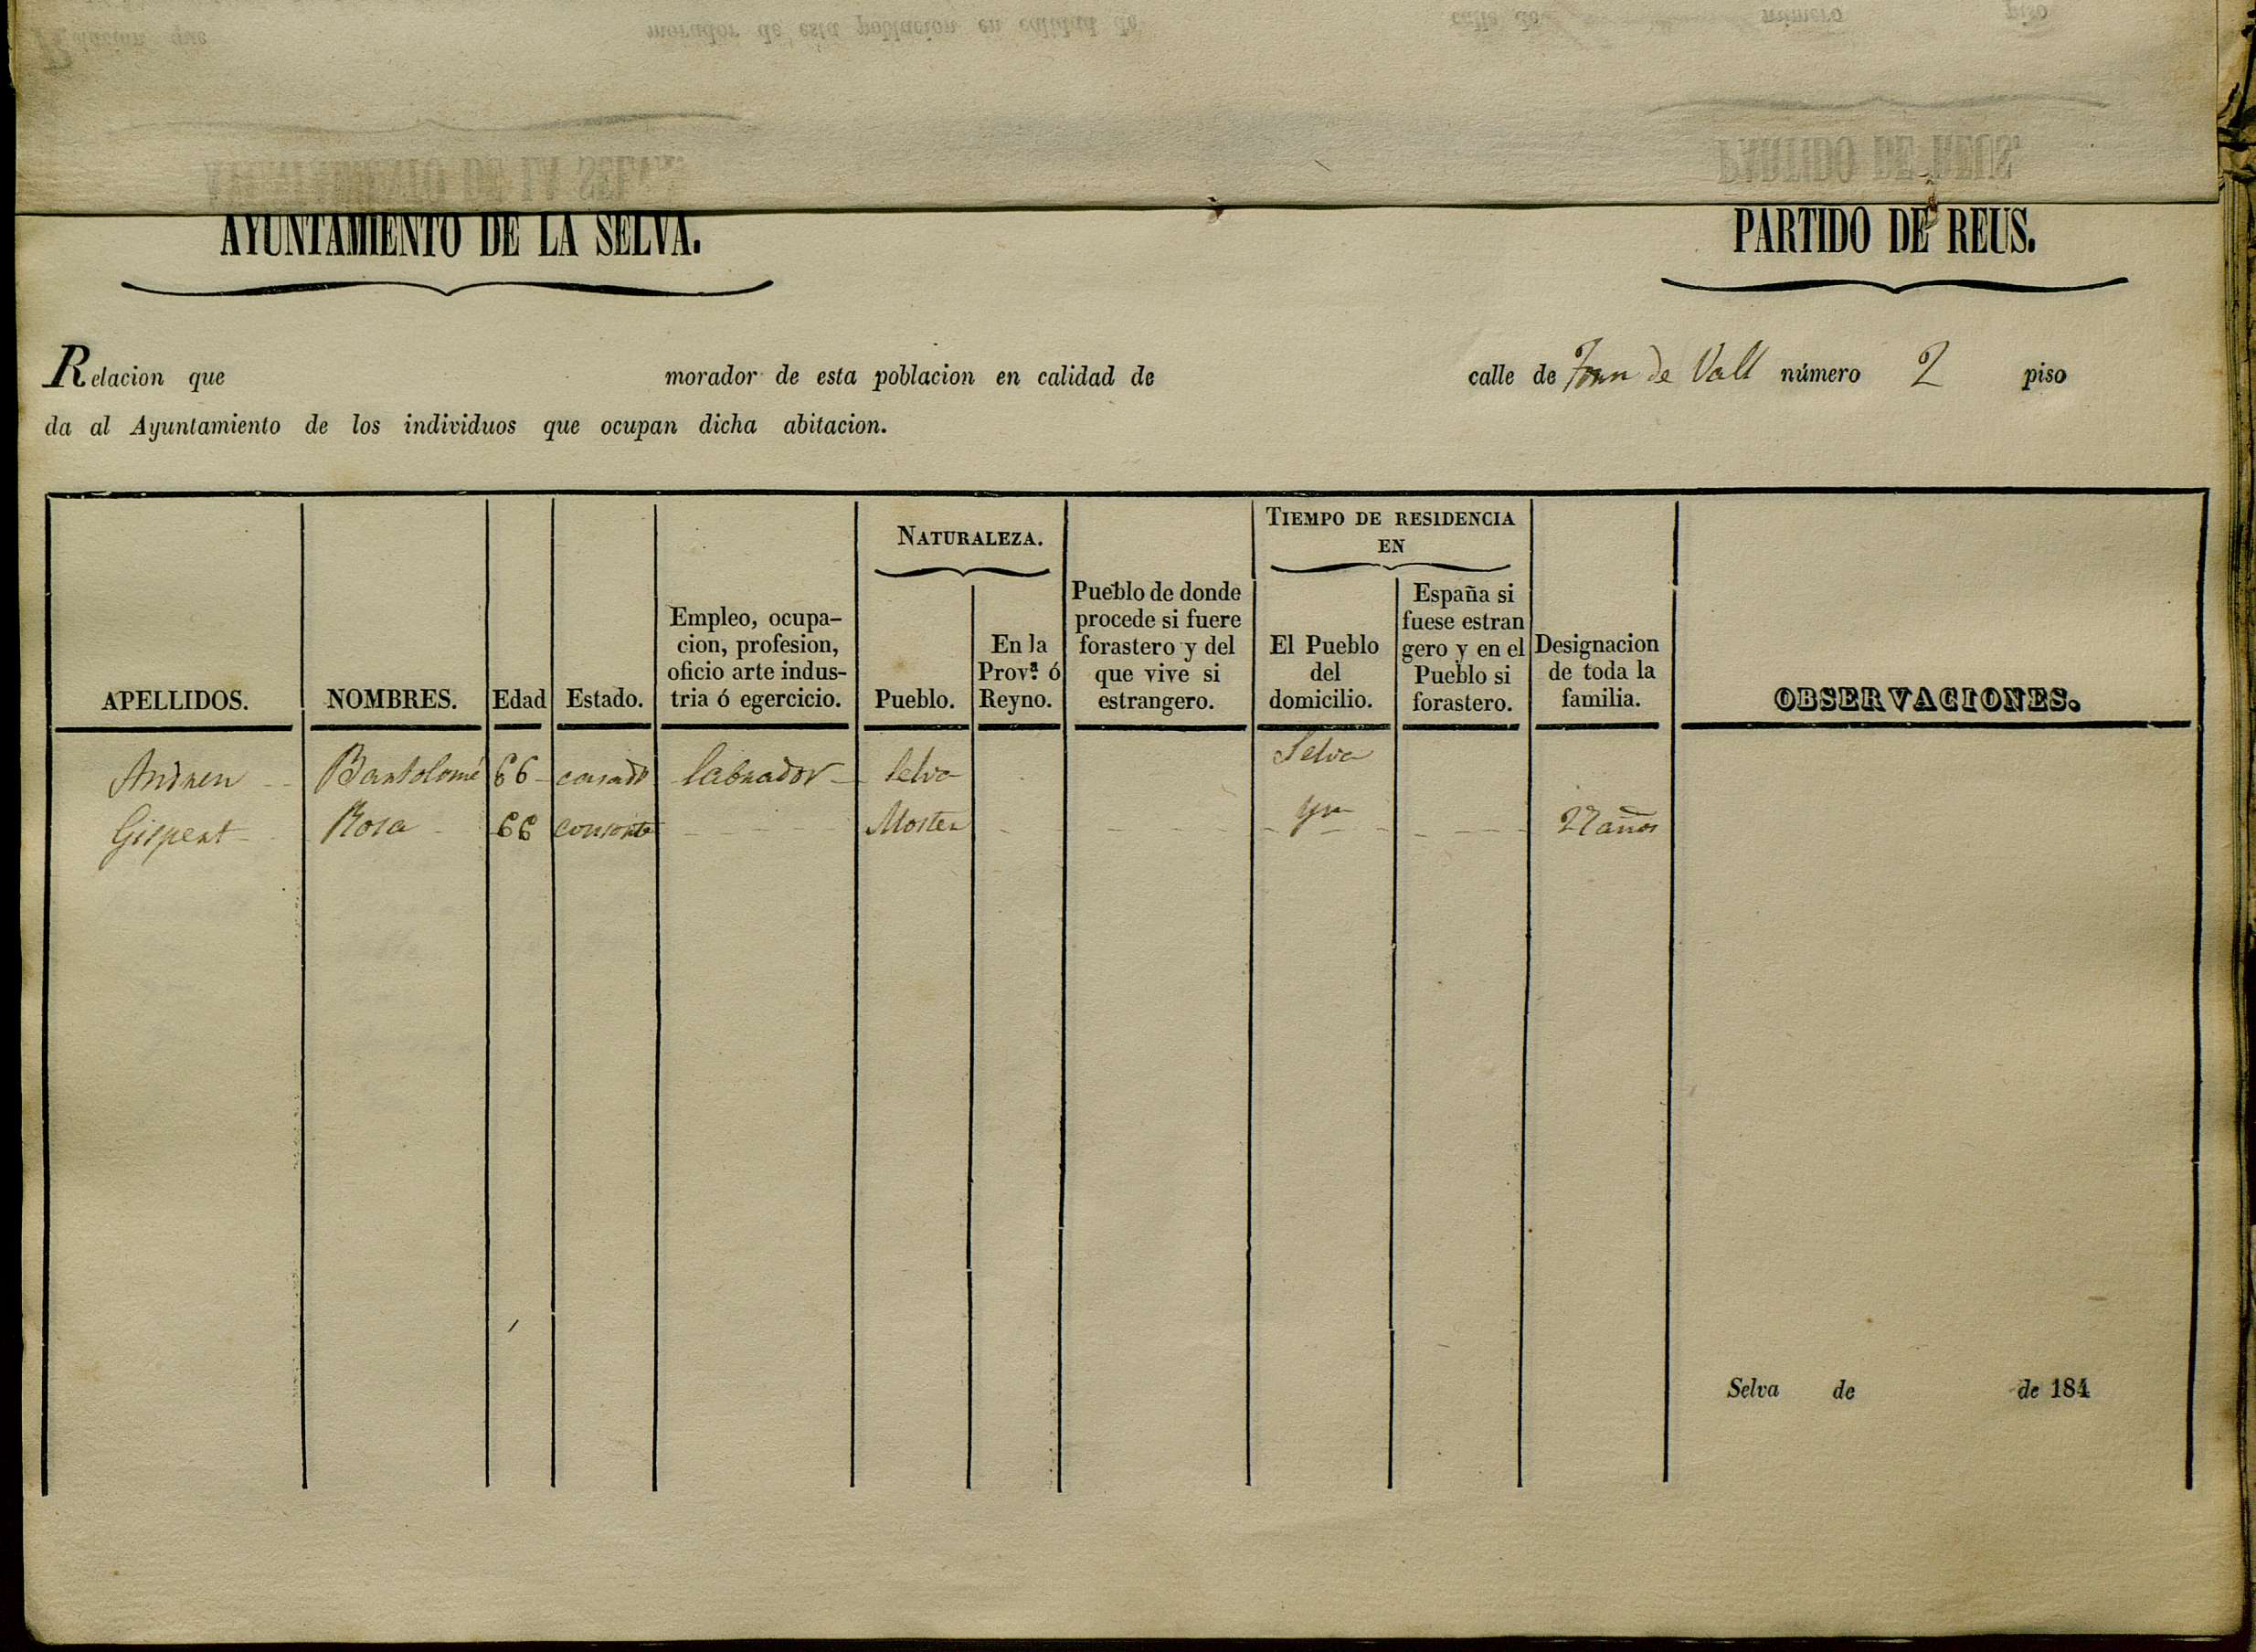 AYUNTAMIENTO DE LA SELVA. PARTIDO DE REUS.
Relacion que morador de esta poblacion en calidad de calle de de Vall número 2 piso
da al Ayuntamiento de los individuos que ocupan dicha abitacion.
APELLIDOS.
NOMBRES.
Edad
Estado.
Empleo, ocupa-
cion, profesion,
oficio arte indus-
tria ó egercicio.
NATURALEZA.
Pueblo.
En la
Prov.ª ó
Reyno.
Pueblo de donde
procede si fuere
forastero y del
que vive si
estrangero.
TIEMPO DE RESIDENCIA
EN
El Pueblo
del
domicilio.
España si
fuese estran
gero y en el
Pueblo si
forastero.
Designacion
de toda la
familia.
OBSERVACIONES.
Andreu Bartolomé 66 casado labrador Selva Selva
Gispert Rosa 66 consorte Moster 27 años
Selva de de 184